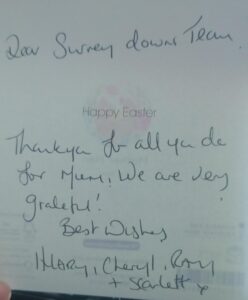 Dear Surrey downs Team,
Happy Easter
Thankyou for all you do
for Mum, We are very
grateful!
Best Wishes
Hilary, Cheryl, Rory
+ Scarlett x